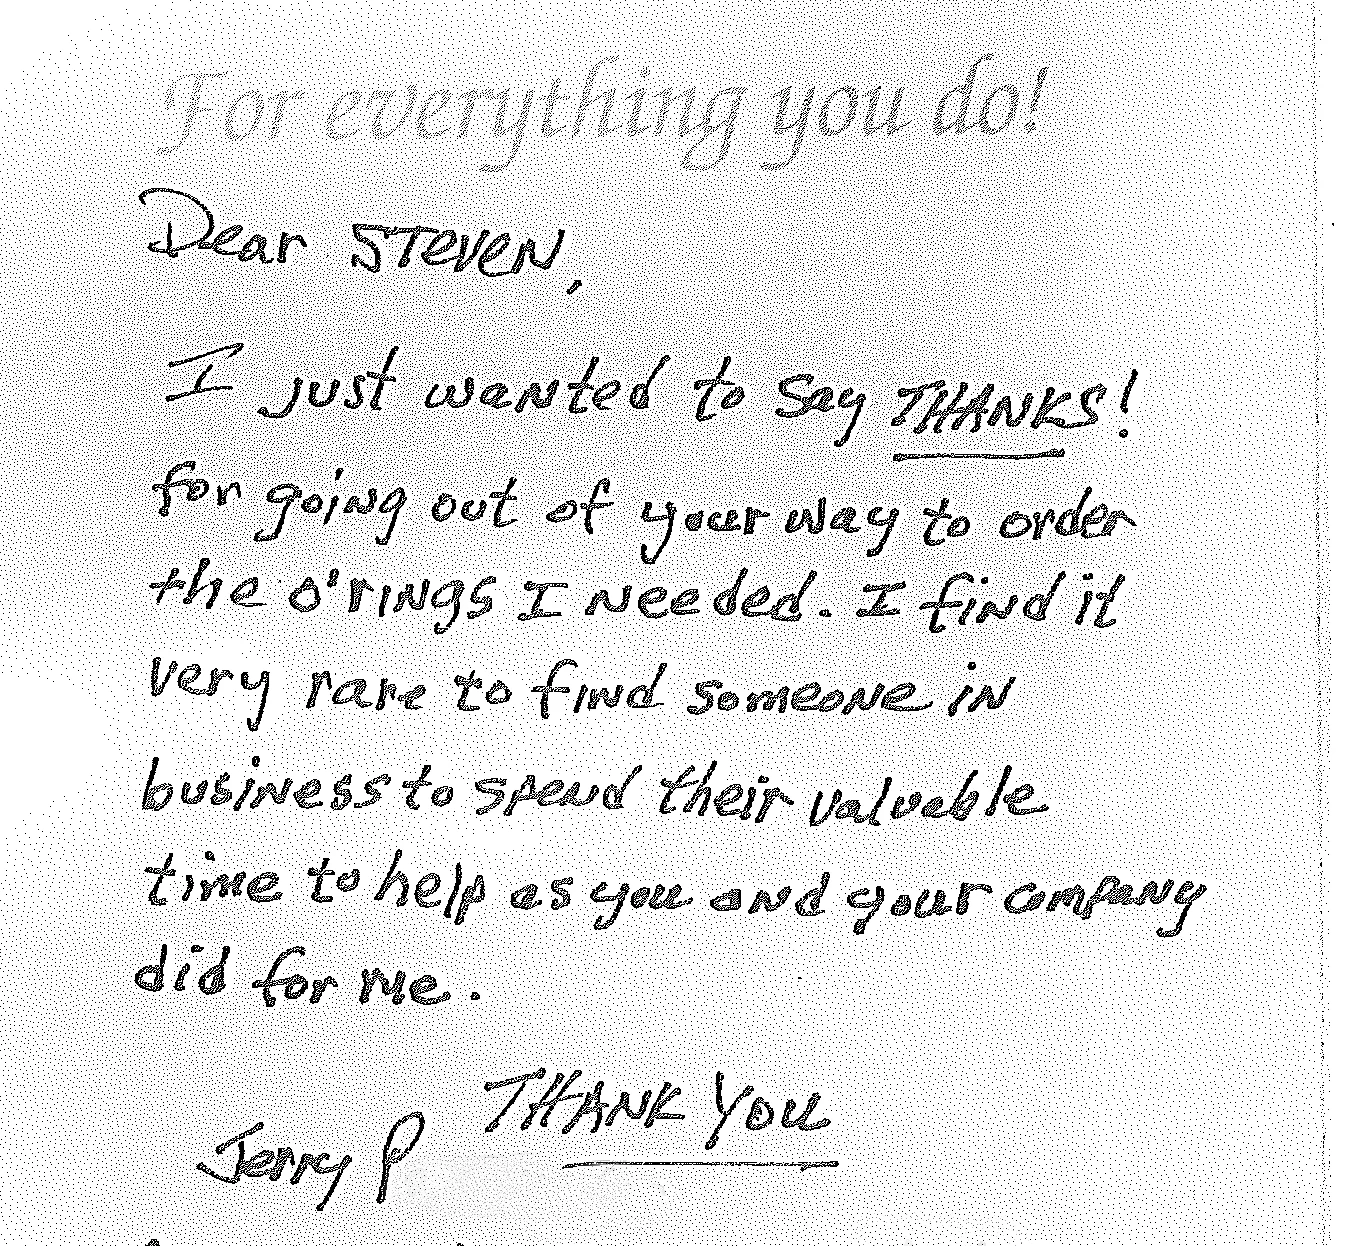 For everything you do!
Dear STEVEN,
I just wanted to say THANKS!
for going out of your way to order
the o'rings I needed. I find it
very rare to find someone in
business to spend their valuable
time to help as you and your company
did for me.
THANK YOU
Jerry P